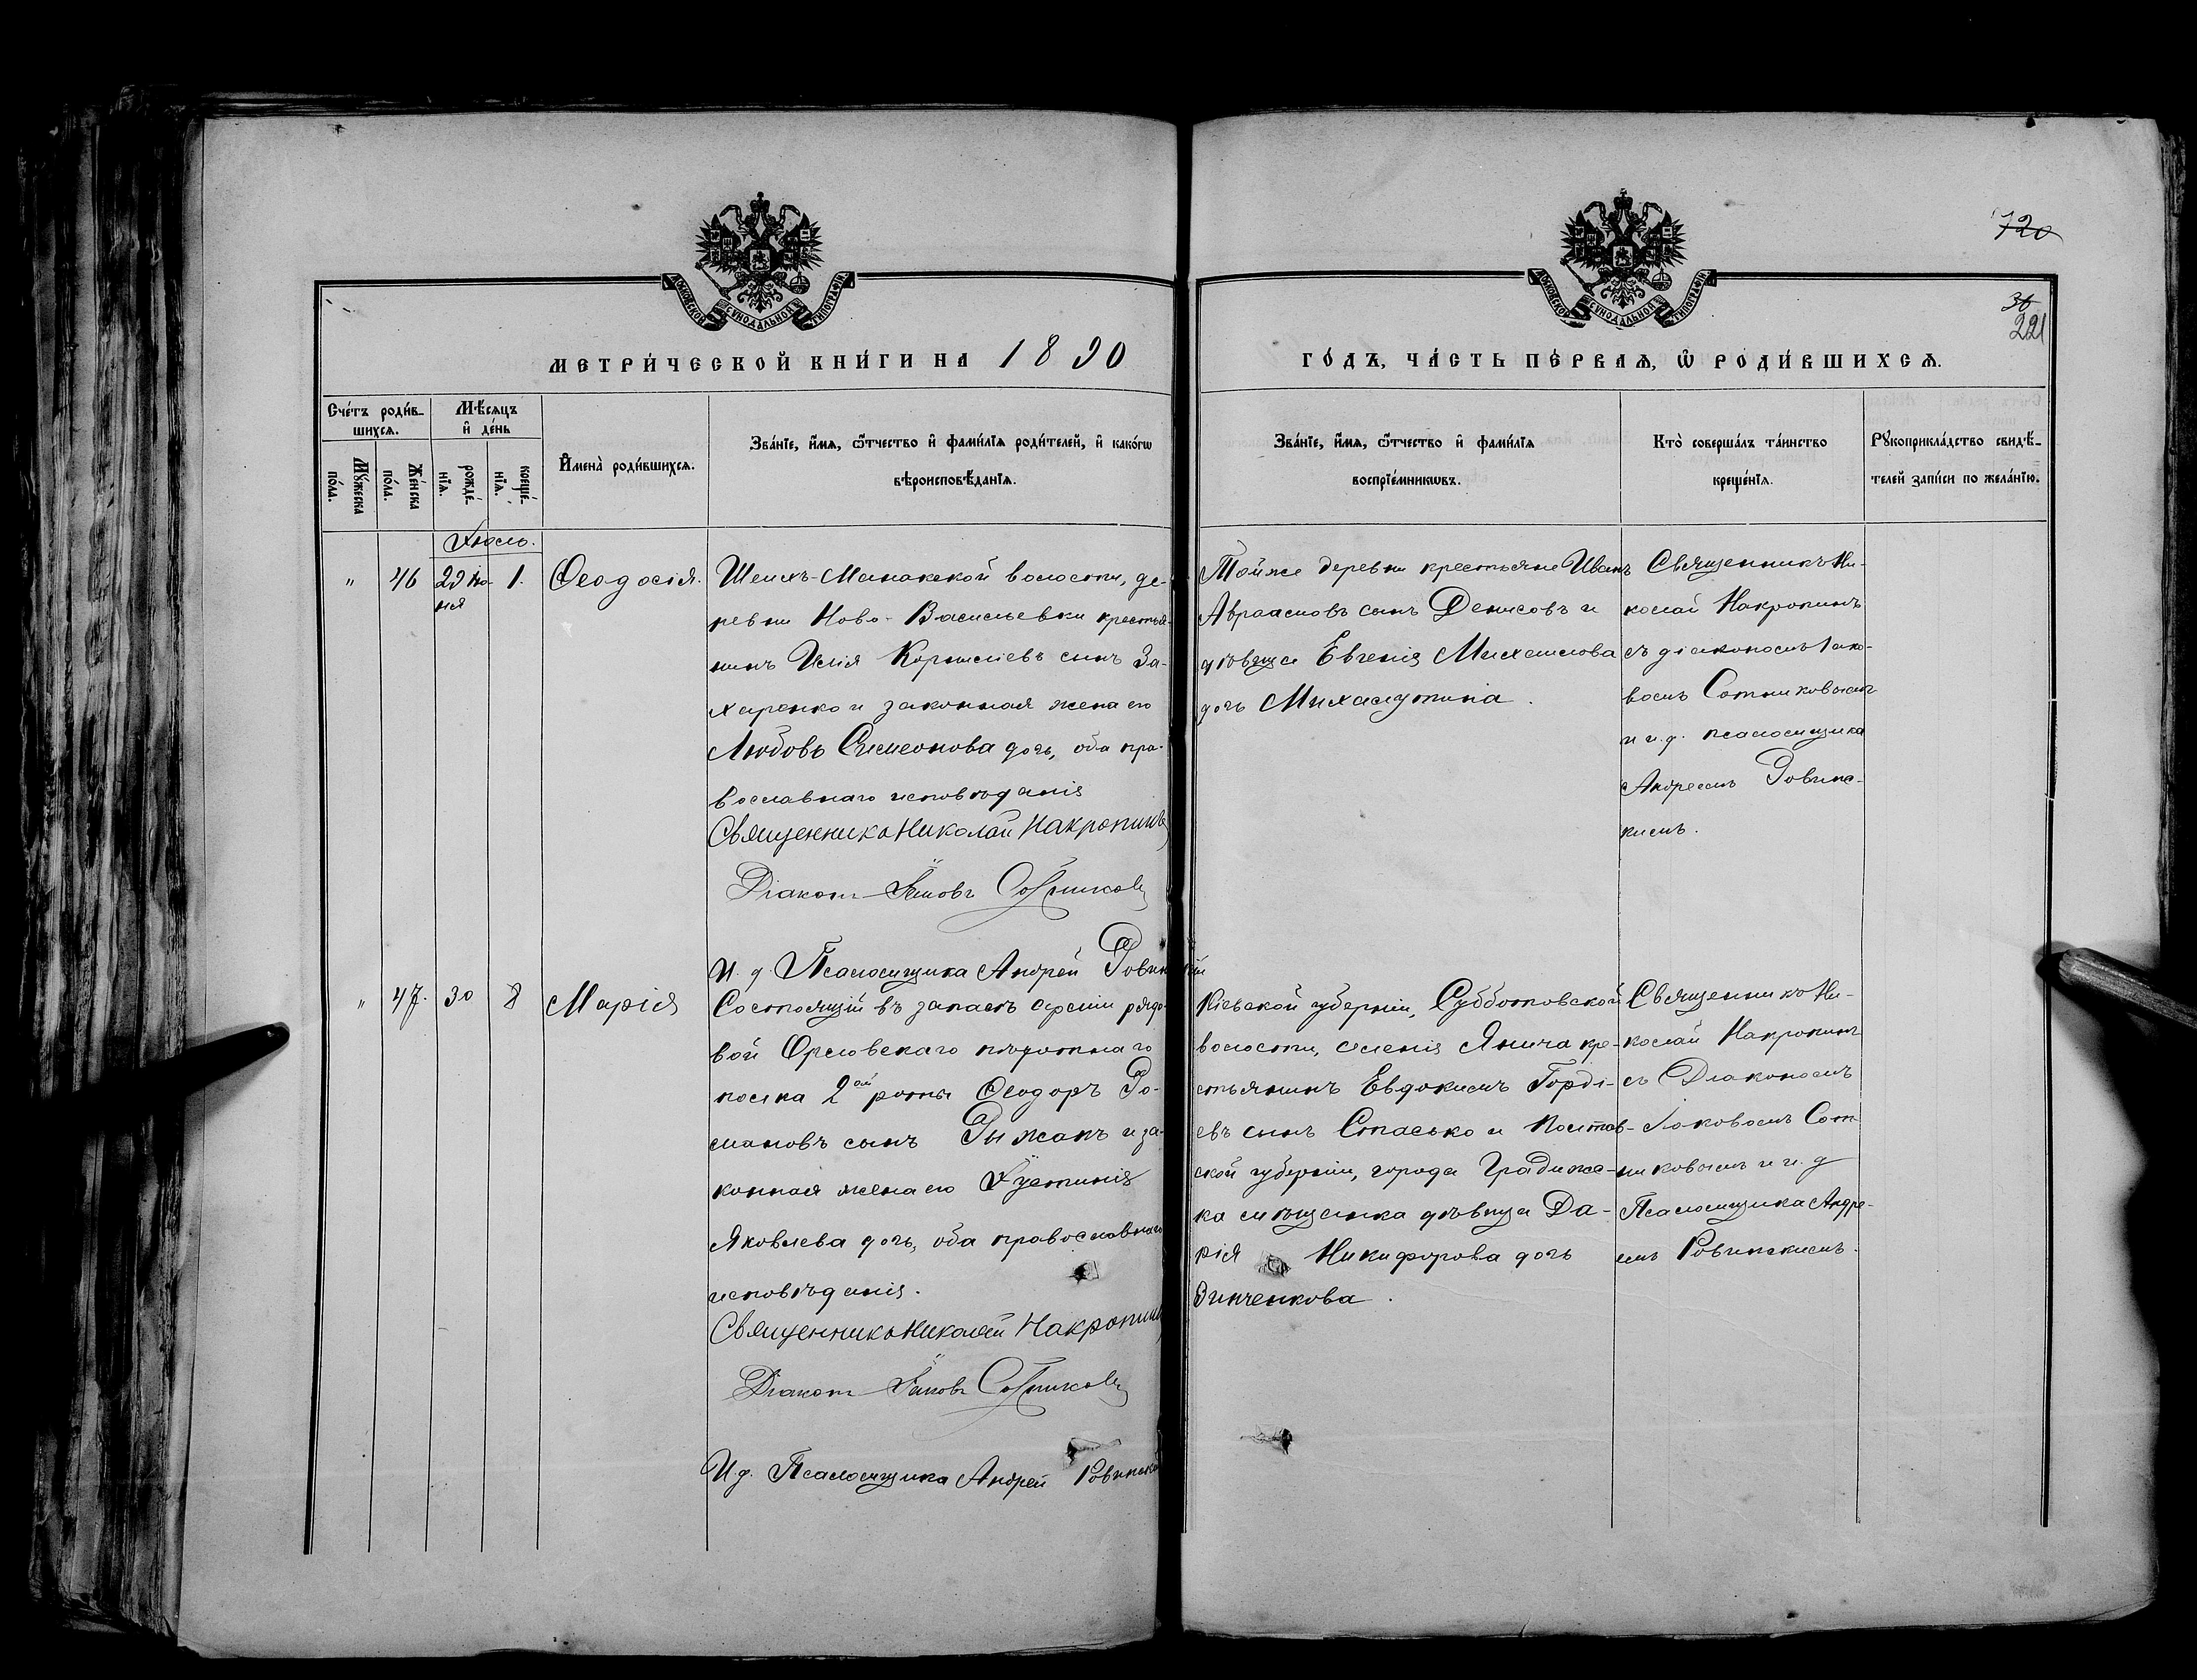 720
36
221
МОСКОВСКОЙ СѴНОДАЛЬНОЙ ТИПОГРАФІИ
МОСКОВСКОЙ СѴНОДАЛЬНОЙ ТИПОГРАФІИ
МЕТРИ́ЧЕСКОЙ КНИ́ГИ НА 1890
ГО́ДЪ, ЧА́СТЬ ПЕ́РВАѦ, Ѡ҆ РОДИ́ВШИХСѦ.
Сче́тъ роди́в-
шихсѧ.
Мѣ́сѧцъ
и҆ де́нь
Мꙋ́жеска
по́ла.
Же́нска
по́ла.
рожде́-
нїѧ.
креще́-
нїѧ.
И҆мена̀ роди́вшихсѧ.
Зва́нїе, и҆́мѧ, ѻ҆́тчество и҆ фами́лїѧ роди́телей, и҆ како́гѡ
вѣроисповѣ́данїѧ.
Зва́нїе, и҆́мѧ, ѻ҆́тчество и҆ фами́лїѧ
воспрїе́мникѡвъ.
Кто̀ соверша́лъ та́инство
креще́нїѧ.
Рꙋкоприкла́дство свидѣ́-
телей за́писи по жела́нїю.
Іюль.
" 46 29 Ію-
ня
1. Ѳеодосія.
Шеихъ-Манакской волости, де-
ревни Ново-Васильевки крестья-
нинъ Илія Корниліевъ сынъ За-
харенко и законная жена его
Любовь Симеонова дочь, оба пра-
вославнаго исповѣданія
Священникъ Николай Накропинъ
Діаконъ Іаковъ Сотниковъ
И. д. Псаломщика Андрей Ровинскій
Тойже деревни крестьяне Иванъ
Авраамовъ сынъ Денисовъ и
дѣвица Евгенія Михаилова
дочь Михалутина.
Священникъ Ни-
колай Накропинъ
съ діакономъ Іако-
вомъ Сотниковымъ
и и. д. псаломщика
Андреемъ Ровинс-
кимъ.
" 47. 30 8 Марія
Состоящій въ запасѣ арміи рядо-
вой Орловскаго пѣхотнаго
полка 2ой роты Ѳеодоръ Ро-
мановъ сынъ Рыжакъ и за-
конная жена его Іустинія
Яковлева дочь, оба православнаго
исповѣданія.
Священникъ Николай Накропинъ
Діаконъ Іаковъ Сотниковъ
И д. Псаломщика Андрей Ровинскій
Кіевской губерніи, Субботовской
волости, селенія Янича кре-
стьянинъ Евдокимъ Горді-
евъ сынъ Стасько и Полтав-
ской губерніи, города Градижс-
ка мѣщанка дѣвица Да-
рія Никифорова дочь
Зинченкова.
Священникъ Ни-
колай Накропинъ
съ Діакономъ
Іаковомъ Сот-
никовымъ и и. д
Псаломщика Андре-
емъ Ровинскимъ.